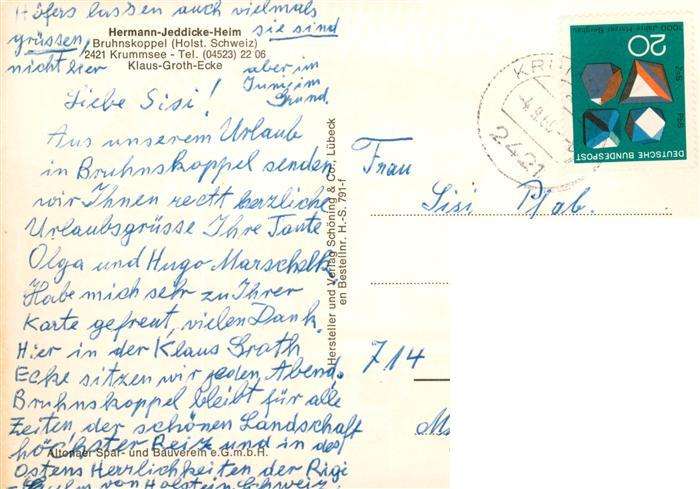 Höfers lassen auch vielmals
grüssen, sie sind
nicht hier aber im
Juni im
Grund.
Hermann-Jeddicke-Heim
Bruhnskoppel (Holst. Schweiz)
2421 Krummsee - Tel. (04523) 22 06
Klaus-Groth-Ecke
Liebe Sisi!
Aus unserem Urlaub
in Bruhnskoppel senden
wir Ihnen recht herzliche
Urlaubsgrüsse Ihre Tante
Olga und Hugo Marschalk
Habe mich sehr zu Ihrer
Karte gefreut, vielen Dank.
Hier in der Klaus Groth
Ecke sitzen wir jeden Abend.
Bruhnskoppel bleibt für alle
Zeiten der schönen Landschaft
höchster Reiz und in des
Ostens Herrlichkeiten der Rigi
von Holstein Schweiz.
Altonaer Spar- und Bauverein e.G.m.b.H.
Hersteller und Verlag Schöning & Co., Lübeck
en Bestellnr. H.-S. 791-f
Frau
Sisi Pfab.
714
2421
20
1000 Jahre Harzer Bergbau
DEUTSCHE BUNDESPOST